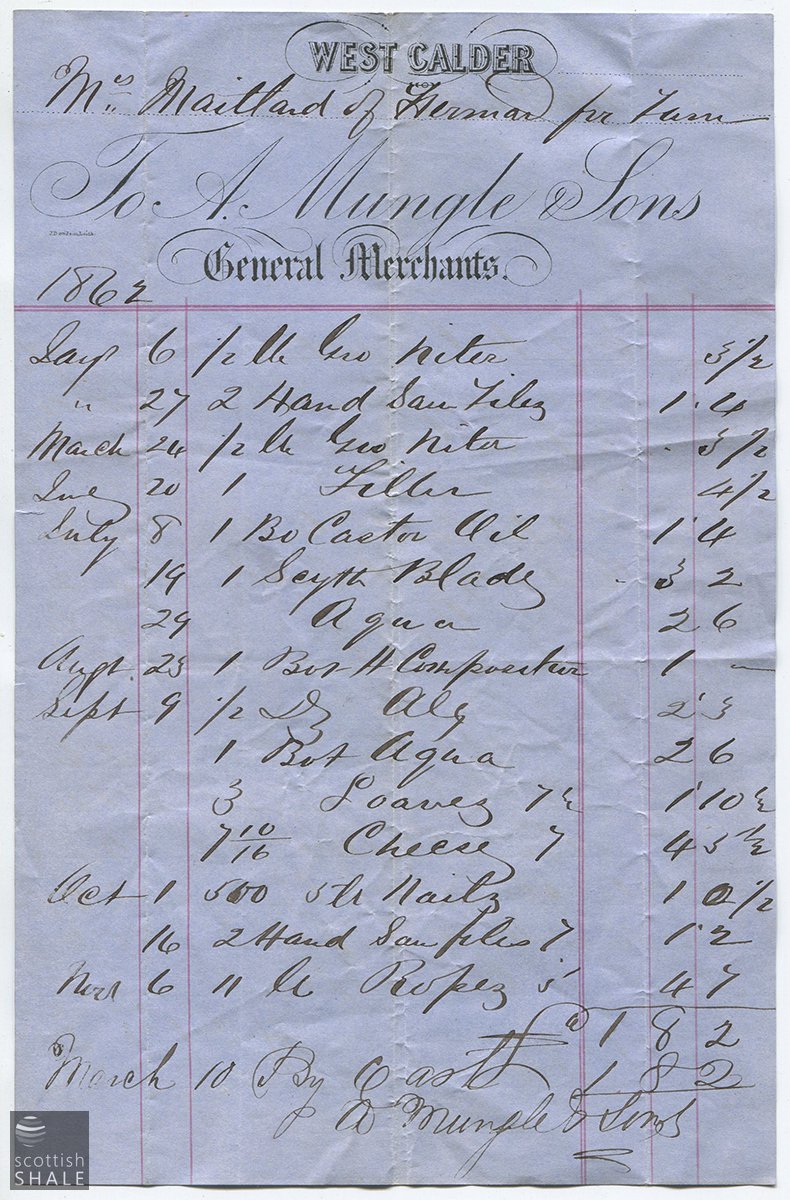 WEST CALDER
Mrs Maitland of Hermand pr Farm
To A. Mungle & Sons
General Merchants.
1862
Jany 6 1/2 lb Gro Niter 3 1/2
" 27 2 Hand Saw Files 1 . 4
March 24 1/2 lb Gro Niter . 3 1/2
June 20 1 Filler 4 1/2
July 8 1 Bo Castor Oil 1 4
19 1 Scyth Blade 3 2
29 Aqua 2 6
Augt. 23 1 Bot H Composition 1 -
Sept 9 1/2 Dz Ale 2 3
1 Bot Aqua 2 6
3 Loaves 7 1/2 1 10 1/2
7 10/16 Cheese 7 4 5 1/2
Oct 1 500 Nails 1 0 1/2
16 2 Hand Saw files 7 1 2
Novr 6 11 lb Ropes 5 4 7
£ 1 8 2
March 10 By Cash 1 8 2
A Mungle & Sons
scottish
SHALE